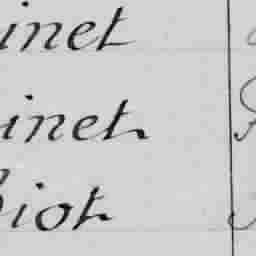 inet
inet
iot